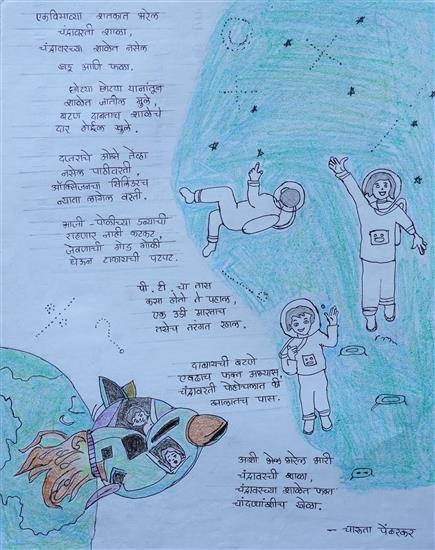 एकविसाव्या शतकात भरेल
चंद्रावरती शाळा,
चंद्रावरच्या शाळेत नसेल
खडू आणि फळा.
छोट्या छोट्या यानांतून
शाळेत जातील मुले,
बटण दाबताच शाळेचे
दार होईल खुले.
दप्तराचे ओझे तेव्हा
नसेल पाठीवरती,
ऑक्सिजनचा सिलिंडरच
न्यावा लागेल वरती.
भाजी पोळीच्या डब्याची
राहणार नाही कटकट,
जेवणाची गोड गोळी
घेऊन टाकायची पटपट.
पी. टी. चा तास
कसा होतो ते पहाल,
एक उडी मारताच
तसेच तरंगत रहाल.
दाबायची बटणे
एवढाच फक्त अभ्यास,
चंद्रावरती पोहोचलात की
झालातच पास.
अशी भरेल भारी
चंद्रावरची शाळा,
चंद्रावरच्या शाळेत फक्त
चांदण्यांशीच खेळा.
- चारुता पेंढरकर